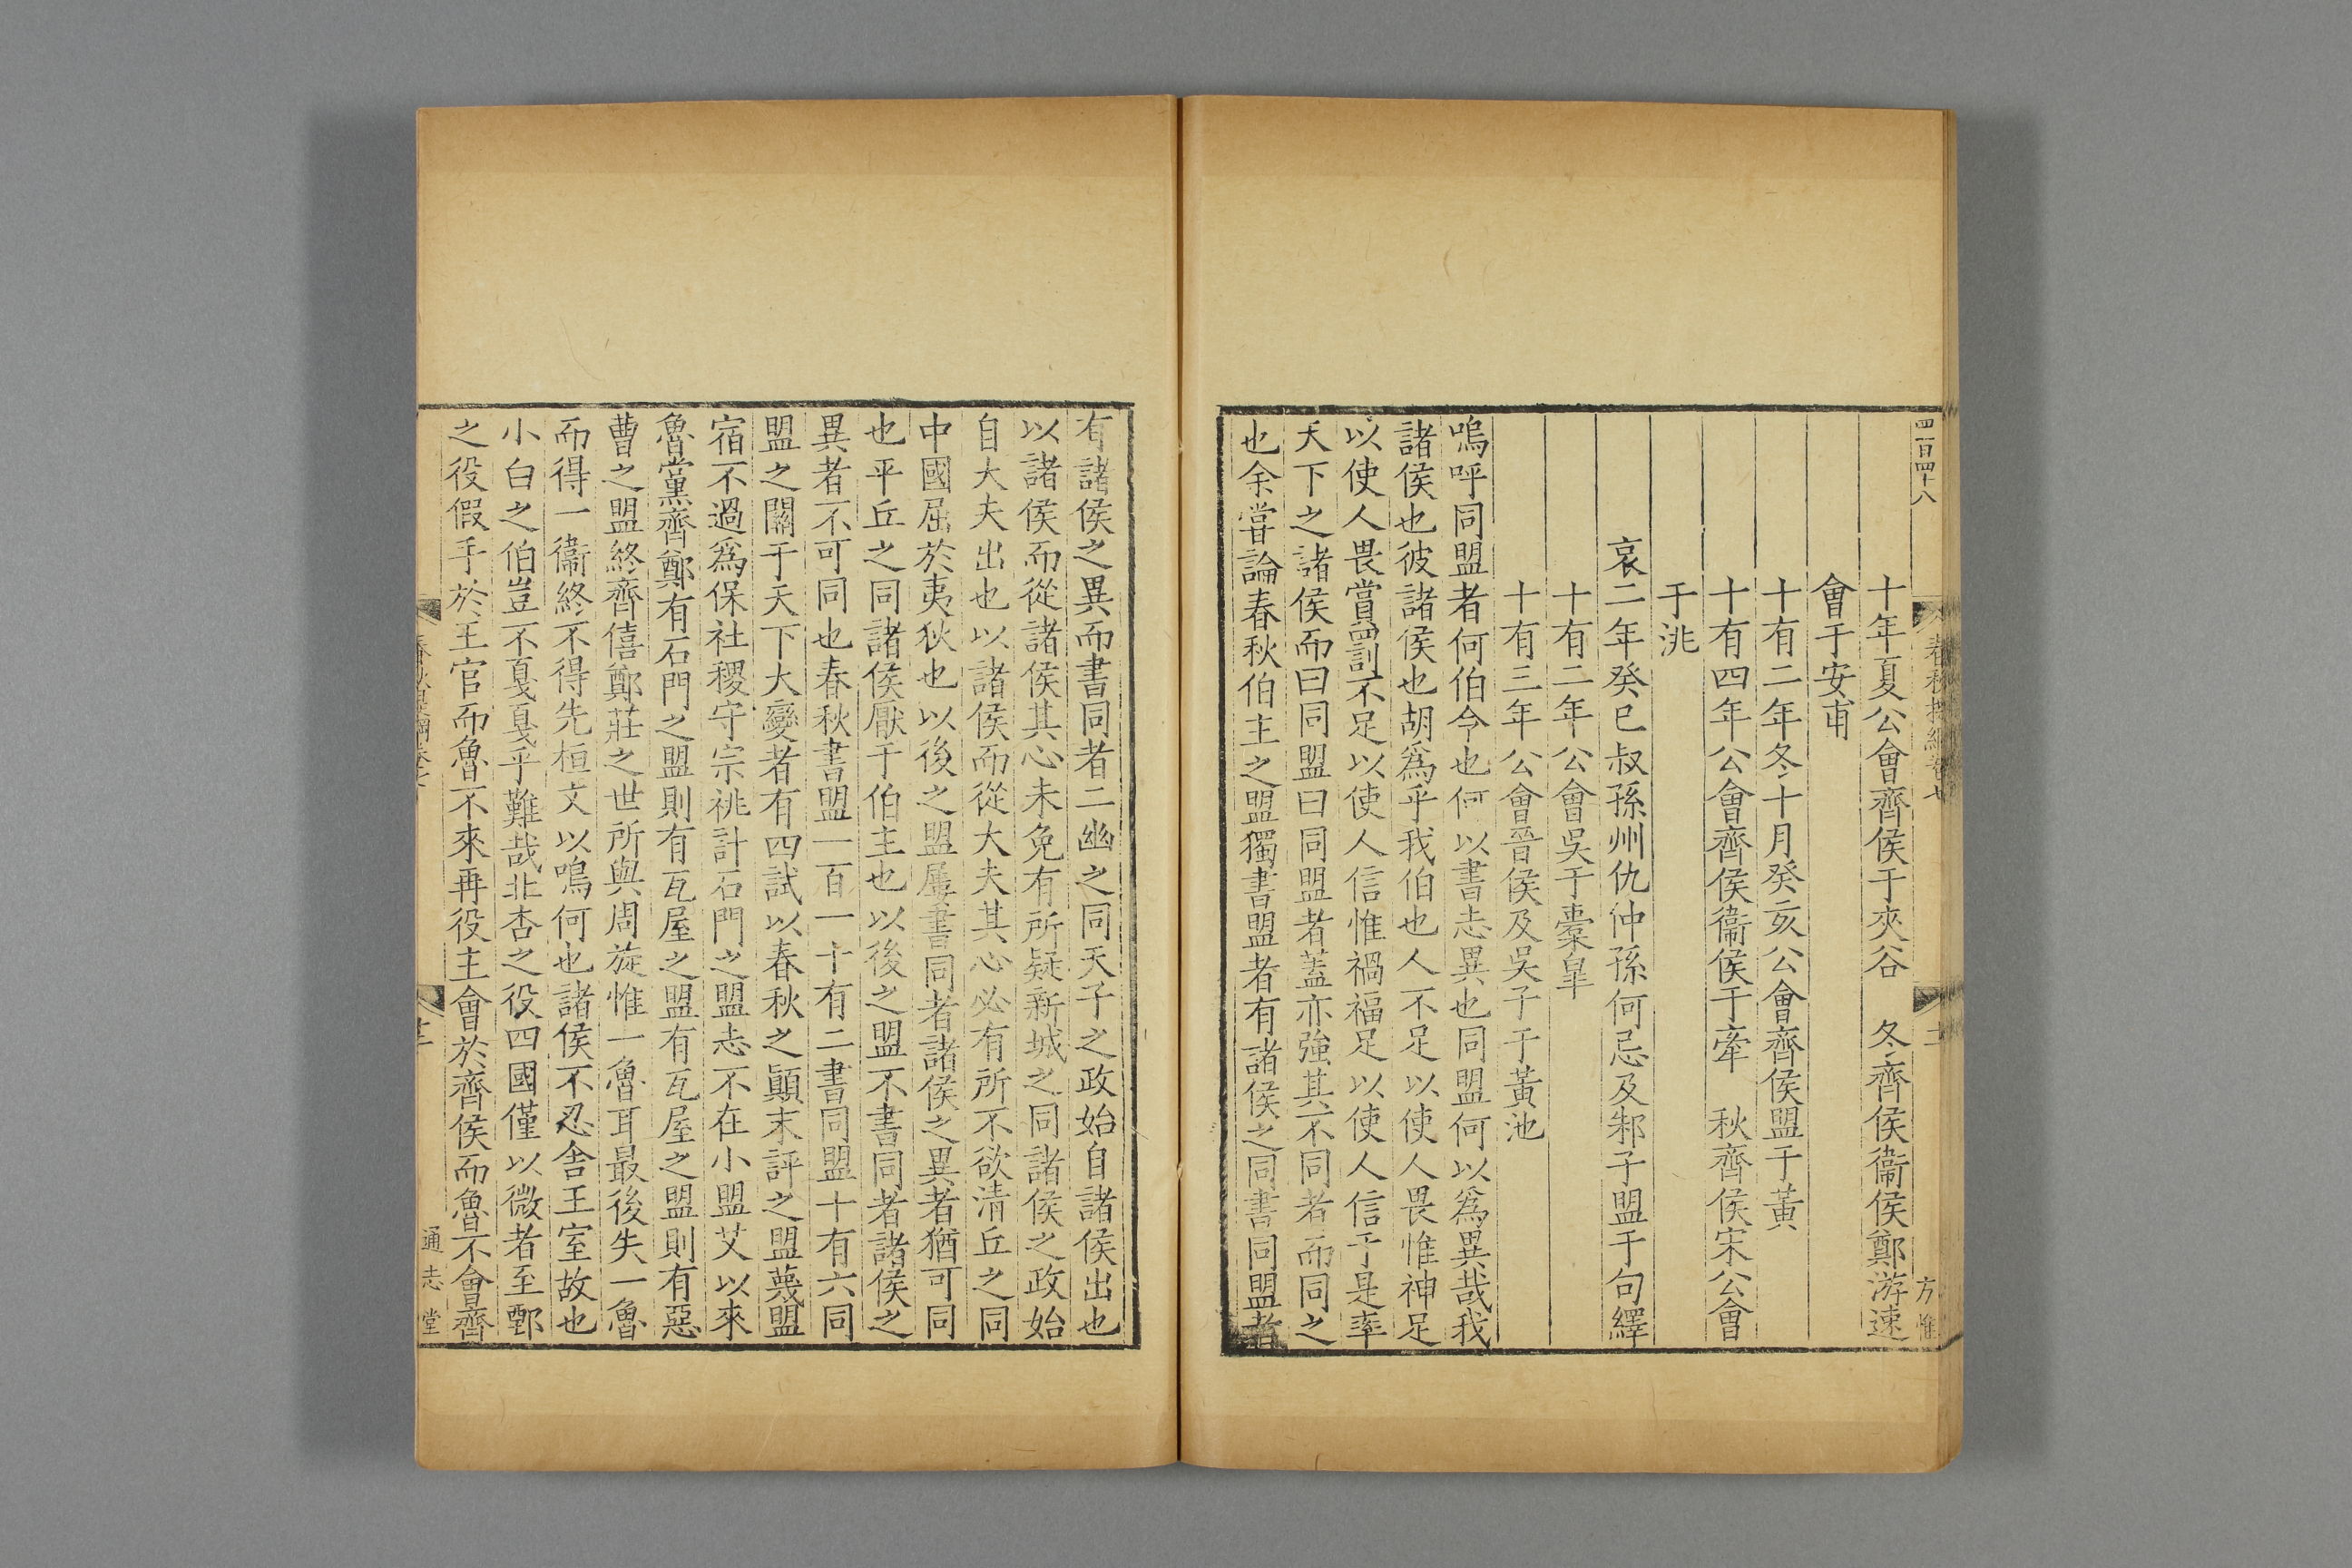 四百四十八
春秋提綱卷七
方惟
十年夏公會齊侯于夾谷　冬齊侯衞侯鄭游速
會于安甫
十有二年冬十月癸亥公會齊侯盟于黃
十有四年公會齊侯衞侯于牽　秋齊侯宋公會
于洮
哀二年癸巳叔孫州仇仲孫何忌及邾子盟于句繹
十有二年公會吳于橐皐
十有三年公會晉侯及吳子于黃池
嗚呼同盟者何伯令也何以書志異也同盟何以爲異哉我
諸侯也彼諸侯也胡爲乎我伯也人不足以使人畏惟神足
以使人畏賞罰不足以使人信惟禍福足以使人信于是率
天下之諸侯而曰同盟曰同盟者蓋亦強其不同者而同之
也余嘗論春秋伯主之盟獨書盟者有諸侯之同書同盟者
有諸侯之異而書同者二幽之同天子之政始自諸侯出也
以諸侯而從諸侯其心未免有所疑新城之同諸侯之政始
自大夫出也以諸侯而從大夫其心必有所不欲清丘之同
中國屈於夷狄也以後之盟屢書同者諸侯之異者猶可同
也平丘之同諸侯厭于伯主也以後之盟不書同者諸侯之
異者不可同也春秋書盟一百一十有二書同盟十有六同
盟之關于天下大變者有四試以春秋之顚末評之盟蔑盟
宿不過爲保社稷守宗祧計石門之盟志不在小盟艾以來
魯黨齊鄭有石門之盟則有瓦屋之盟有瓦屋之盟則有惡
曹之盟終齊僖鄭莊之世所與周旋惟一魯耳最後失一魯
而得一衞終不得先桓文以鳴何也諸侯不忍舍王室故也
小白之伯豈不戛戛乎難哉北杏之役四國僅以微者至鄄
之役假手於王官而魯不來再役主會於齊侯而魯不會齊
春秋提綱卷七
通志堂